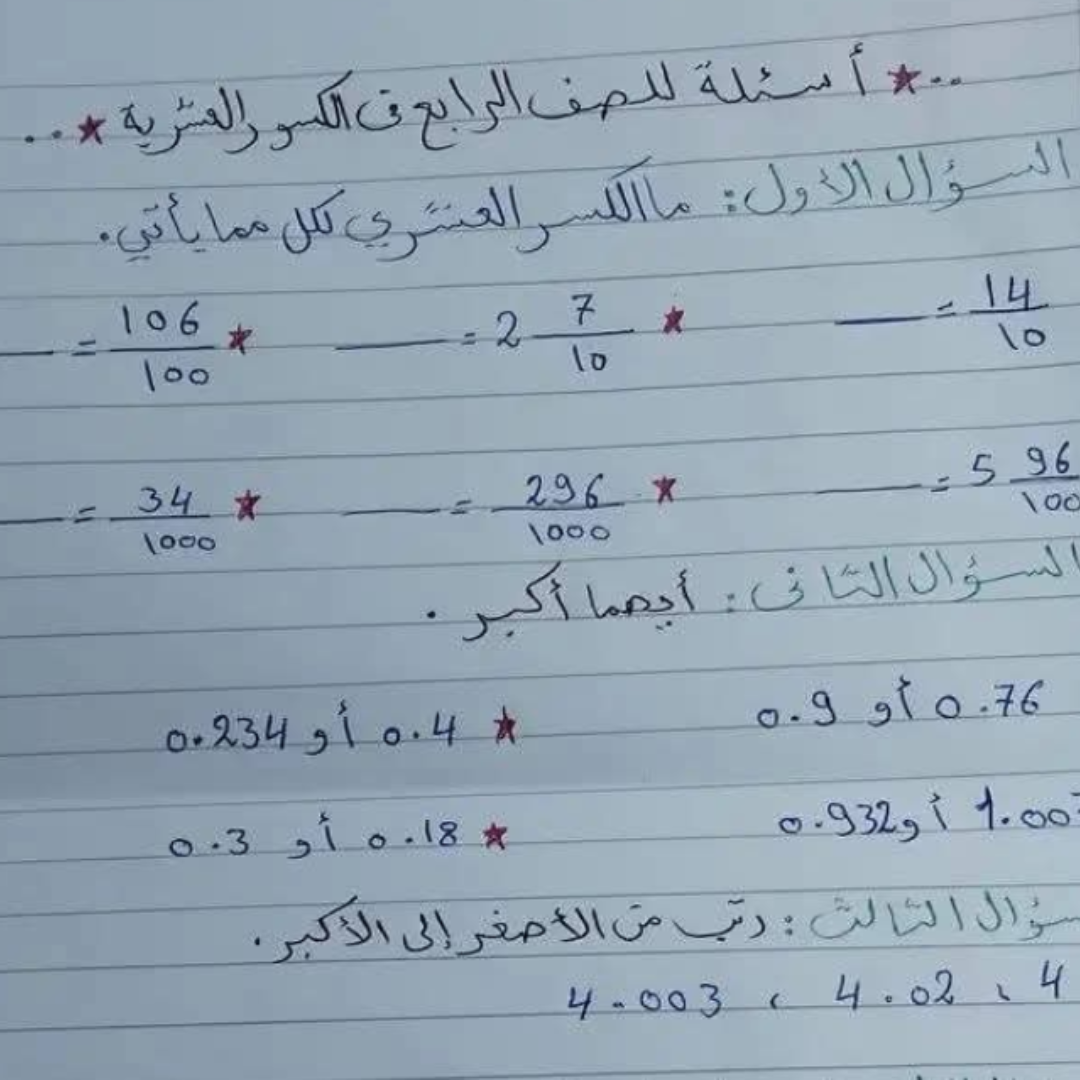 ..★ أسئلة للصف الرابع في الكسور العشرية ★..
السؤال الأول: ما الكسر العشري لكل مما يأتي.
14/10 = ___ ★ 2 7/10 = ___ ★ 106/100 = ___
5 96/100 = ___ ★ 296/1000 = ___ ★ 34/1000 = ___
السؤال الثاني: أيهما أكبر.
0.76 أو 0.9 ★ 0.4 أو 0.234
1.00 أو 0.932 ★ 0.18 أو 0.3
سؤال الثالث: رتب من الأصغر إلى الأكبر.
4 ، 4.02 ، 4.003